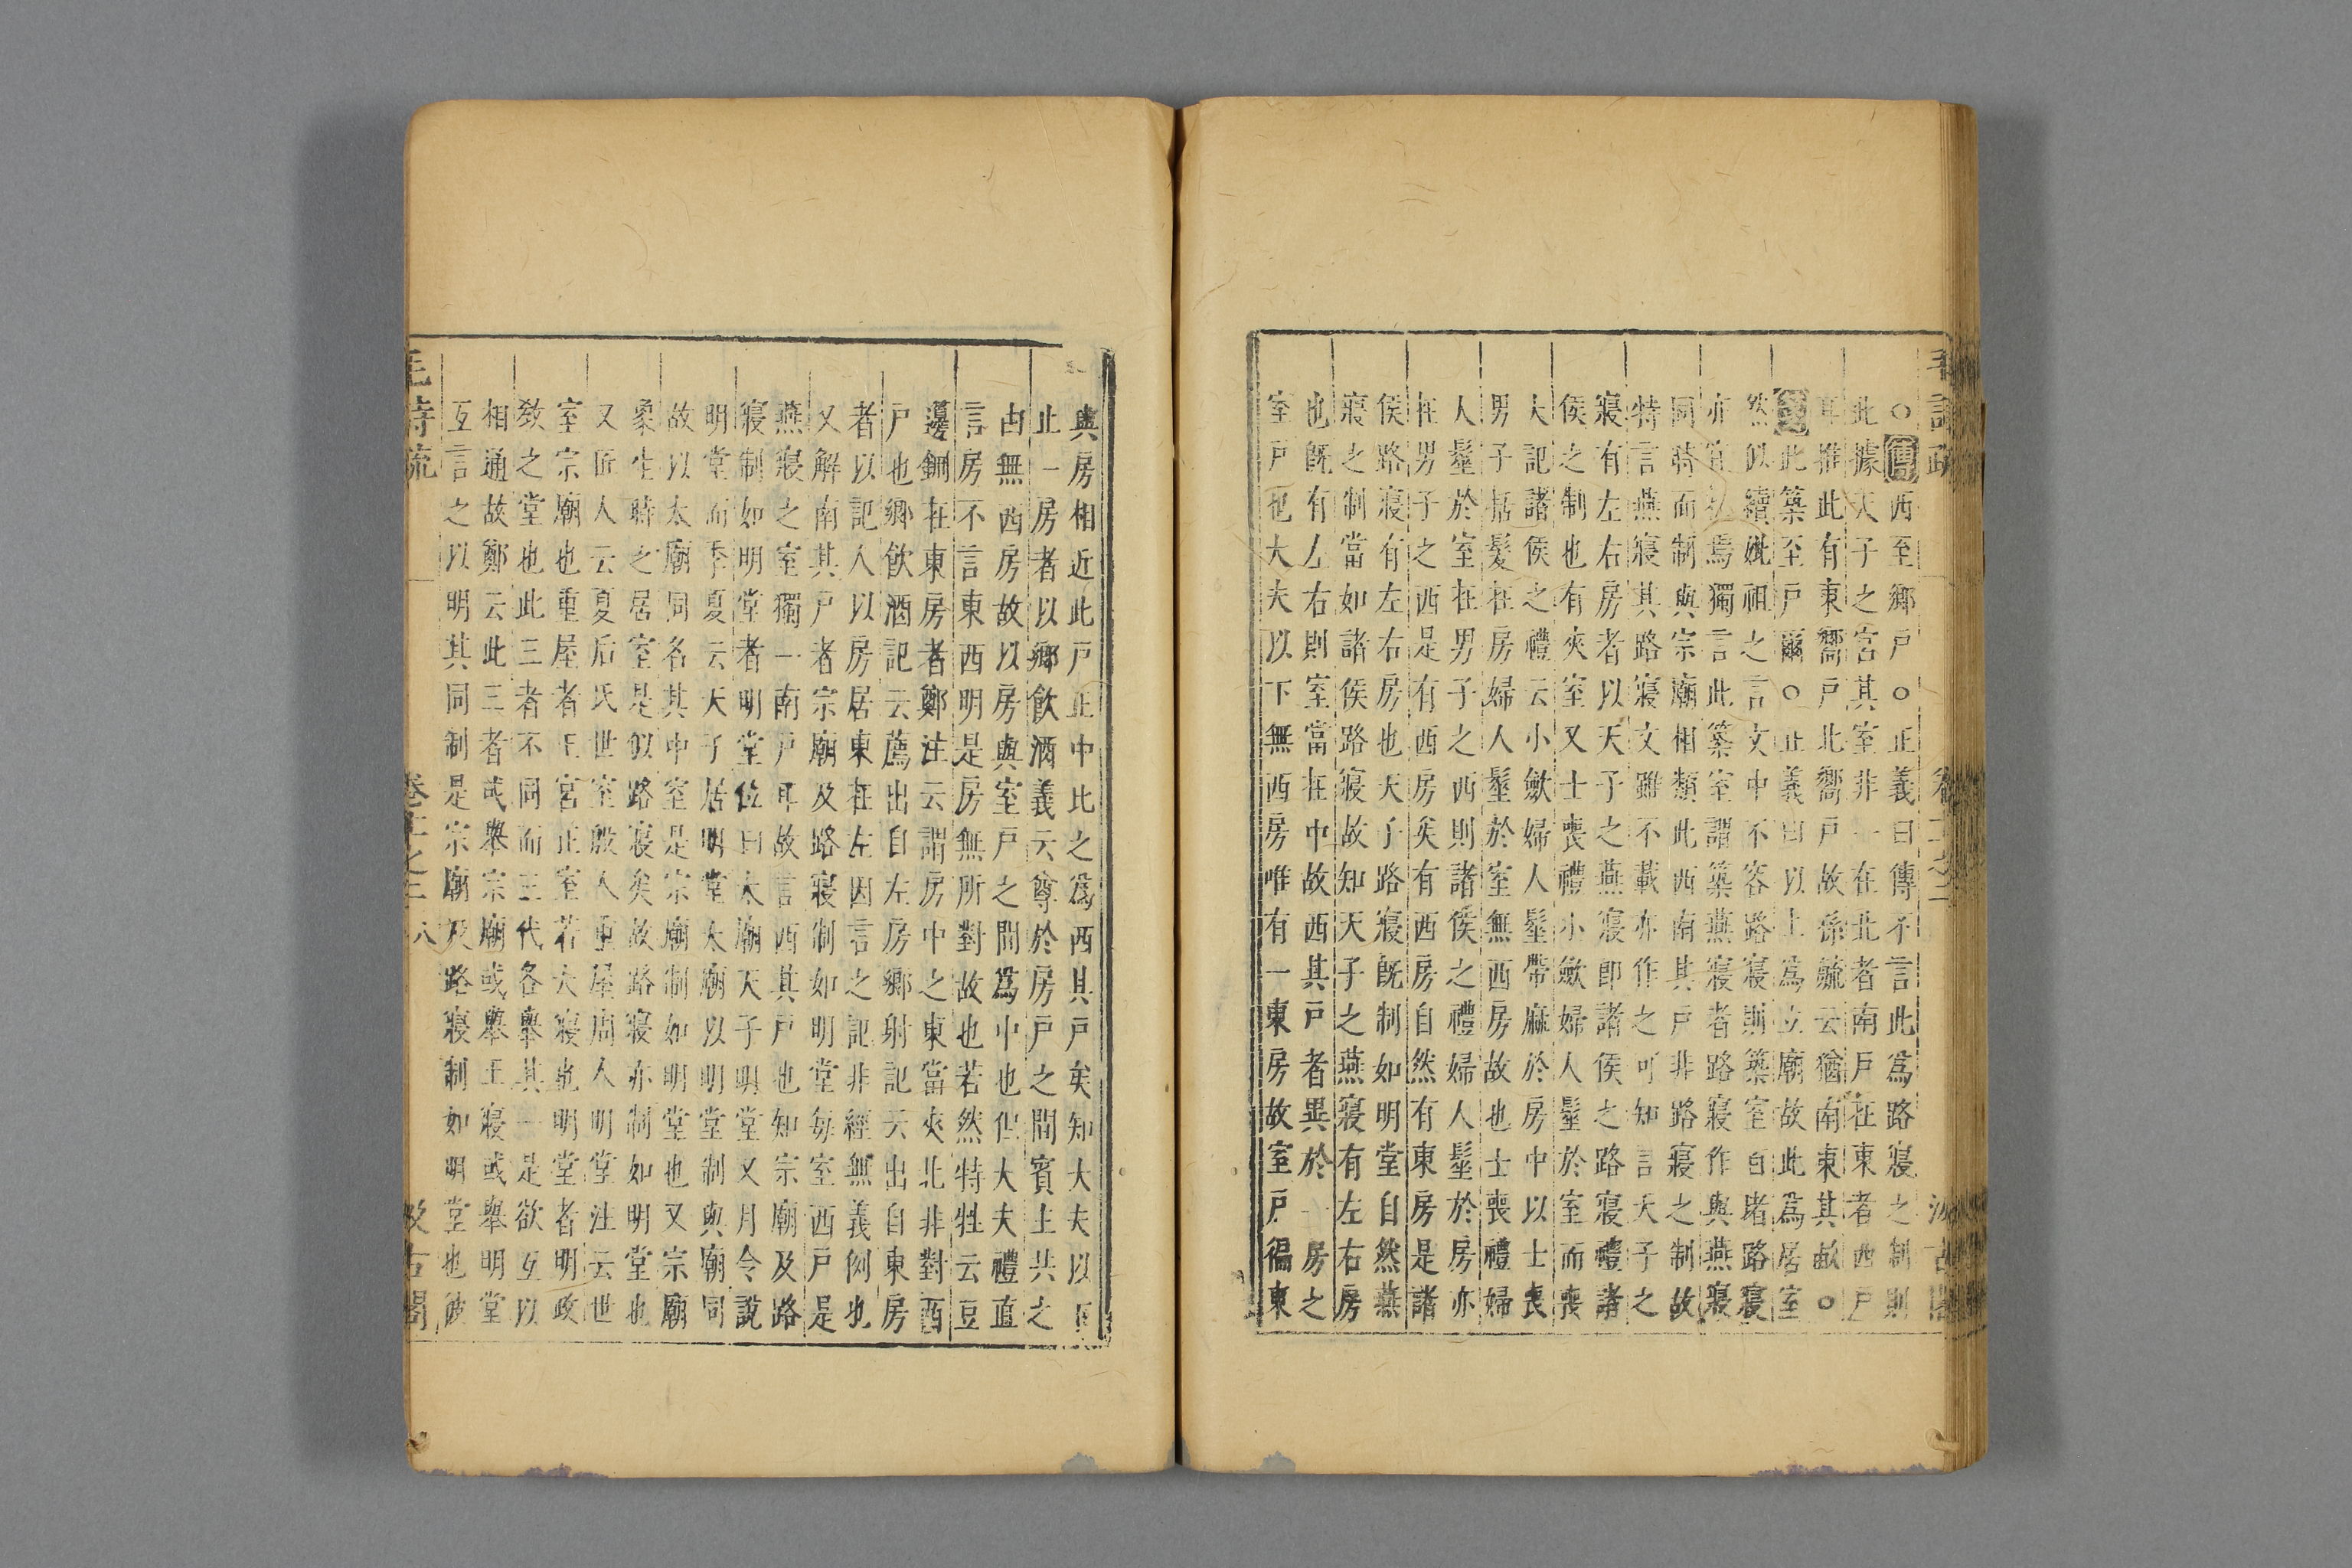 毛詩疏 卷十一之二 汲古閣
○傳西至鄉戶○正義曰傳不言此爲路寢之制則
此據天子之宮其室非一在北者南戶在東者西戶
耳推此有東嚮戶北嚮戶故孫毓云猶南東其畝○
箋此築至戶爾○正義曰以上爲立廟故此爲居室
然似續妣祖之言文中不容路寢則築室自是路寢
亦宜然焉獨言此築室謂築燕寢者路寢作與燕寢
同時而制與宗廟相類此西南其戶非路寢之制故
特言燕寢其路寢文雖不載亦作之可知言天子之
寢有左右房者以天子之燕寢即諸侯之路寢禮諸
侯之制也有夾室又士喪禮小斂婦人髽於室而喪
大記諸侯之禮云小斂婦人髽帶麻於房中以士喪
男子括髮在房婦人髽於室無西房故也士喪禮婦
人髽於室在男子之西則諸侯之禮婦人髽於房亦
在男子之西是有西房矣有西房自然有東房是諸
侯路寢有左右房也天子路寢旣制如明堂自然燕
寢之制當如諸侯路寢故知天子之燕寢有左右房
也旣有左右則室當在中故西其戶者異於一房之
室戶也大夫以下無西房唯有一東房故室戶偏東
與房相近此戶正中比之爲西其戶矣知大夫以下
止一房者以鄉飲酒義云尊於房戶之間賓主共之
由無西房故以房與室戶之間爲中也但大夫禮直
言房不言東西明是房無所對故也若然特牲云豆
籩鉶在東房者鄭注云謂房中之東當夾北非對西
戶也鄉飲酒記云薦出自左房鄉射記云出自東房
者以記人以房居東在左因言之記非經無義例也
又解南其戶者宗廟及路寢制如明堂每室西戶是
燕寢之室獨一南戶耳故言西其戶也知宗廟及路
寢制如明堂者明堂位曰太廟天子明堂又月令說
明堂而季夏云天子居明堂太廟以明堂制與廟同
故以太廟同名其中室是宗廟制如明堂也又宗廟
象生時之居室是似路寢矣故路寢亦制如明堂也
又匠人云夏后氏世室殷人重屋周人明堂注云世
室宗廟也重屋者王宮正室若大寢也明堂者明政
敎之堂也此三者不同而三代各舉其一是欲互以
相通故鄭云此三者或舉宗廟或舉王寢或舉明堂
互言之以明其同制是宗廟及路寢制如明堂也彼
毛詩疏 卷十一之二 八 汲古閣